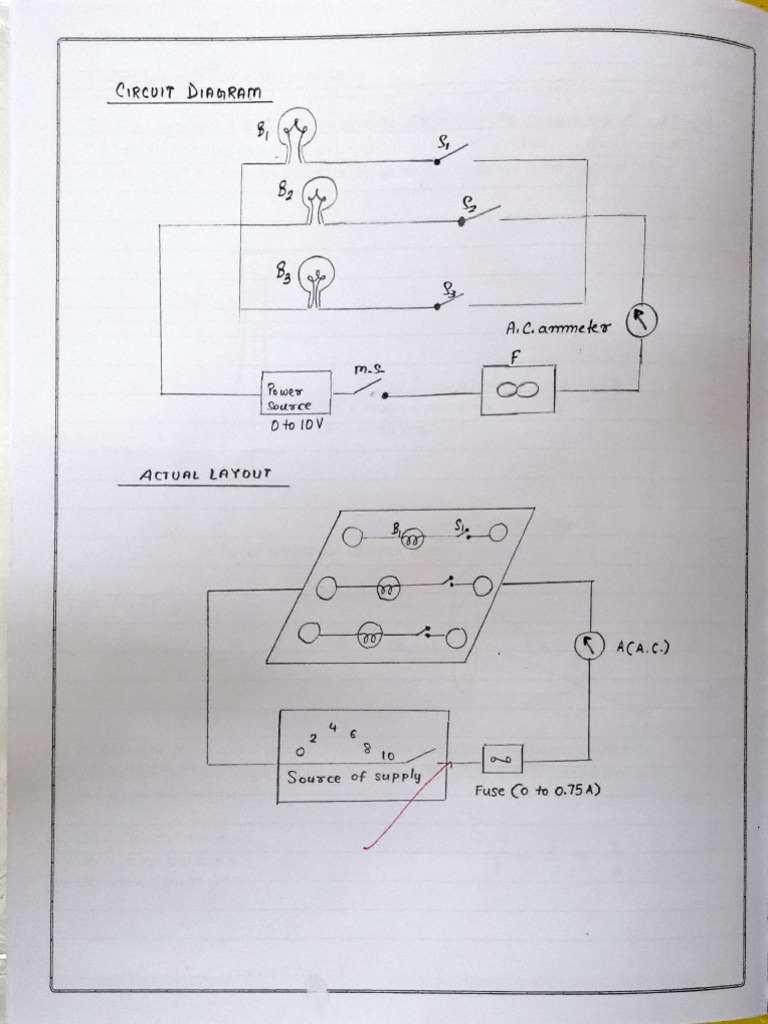 CIRCUIT DIAGRAM
B1
S1
B2
S2
B3
S3
A.C. ammeter
M.S.
F
Power
Source
0 to 10V
ACTUAL LAYOUT
B1 S1
A(A.C.)
0 2 4 6 8 10
Source of supply
Fuse (0 to 0.75A)